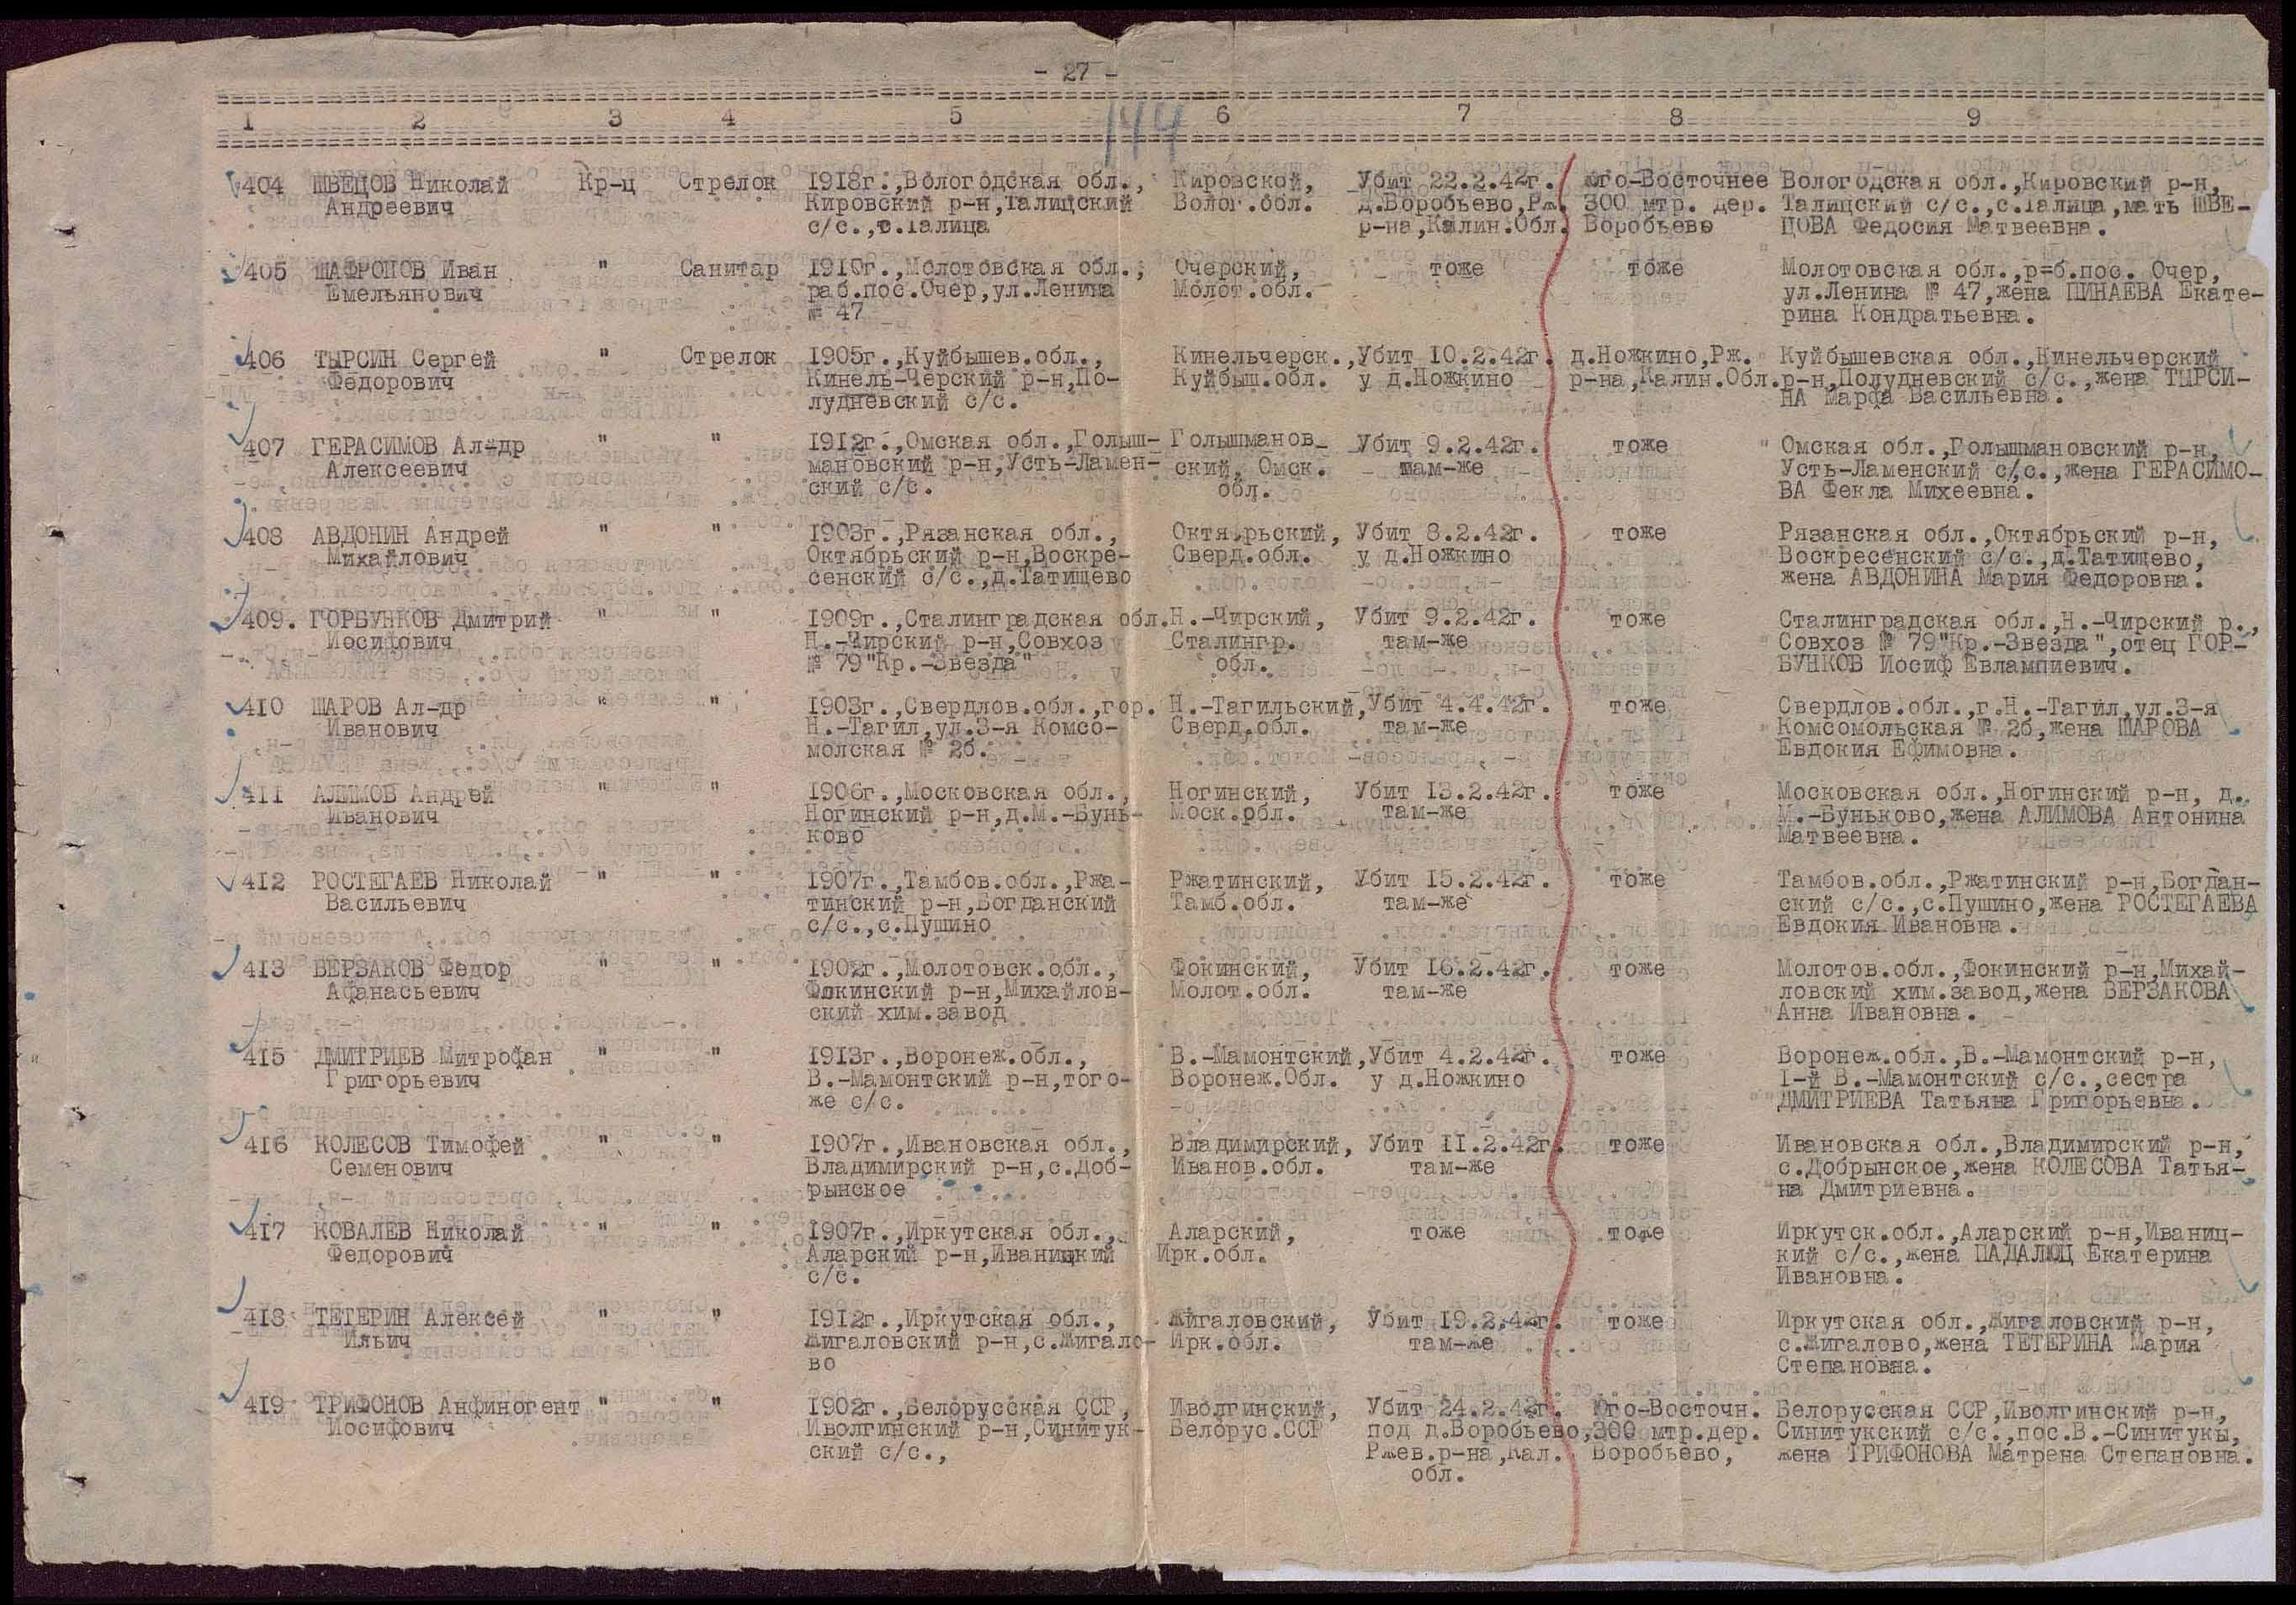 - 27 -
1 2 3 4 5 6 7 8 9
144
404 ШВЕЦОВ Николай Кр-ц Стрелок 1918г.,Вологодская обл., Кировской, Убит 22.2.42г. Юго-Восточнее Вологодская обл.,Кировский р-н,
Андреевич Кировский р-н,Талицский Волог.обл. д.Воробьево,Рж. 300 мтр. дер. Талицский с/с.,с.Талица,мать ШВЕ-
с/с.,с.Талица р-на,Калин.Обл. Воробьево ЦОВА Федосия Матвеевна.
405 ШАФРОНОВ Иван " Санитар 1910г.,Молотовская обл., Очерский, тоже тоже Молотовская обл.,р=б.пос. Очер,
Емельянович раб.пос.Очер,ул.Ленина Молот.обл. ул.Ленина № 47,жена ПИНАЕВА Екате-
№ 47 рина Кондратьевна.
406 ТЫРСИН Сергей " Стрелок 1905г.,Куйбышев.обл., Кинельчерск., Убит 10.2.42г. д.Ножкино,Рж. Куйбышевская обл.,Кинельчерский
Федорович Кинель-Черский р-н,По- Куйбыш.обл. у д.Ножкино р-на,Калин.Обл. р-н,Полудневский с/с.,жена ТЫРСИ-
лудневский с/с. НА Марфа Васильевна.
407 ГЕРАСИМОВ Ал-др " " 1912г.,Омская обл.,Голыш- Голышманов- Убит 9.2.42г. тоже Омская обл.,Голышмановский р-н,
Алексеевич мановский р-н,Усть-Ламен- ский, Омск. там-же Усть-Ламенский с/с.,жена ГЕРАСИМО-
ский с/с. обл. ВА Фекла Михеевна.
408 АВДОНИН Андрей " " 1903г.,Рязанская обл., Октябрьский, Убит 8.2.42г. тоже Рязанская обл.,Октябрьский р-н,
Михайлович Октябрьский р-н,Воскре- Сверд.обл. у д.Ножкино Воскресенский с/с.,д.Татищево,
сенский с/с.,д.Татищево жена АВДОНИНА Мария Федоровна.
409. ГОРБУНКОВ Дмитрий " " 1909г.,Сталинградская обл. Н.-Чирский, Убит 9.2.42г. тоже Сталинградская обл.,Н.-Чирский р.,
Иосифович Н.-Чирский р-н,Совхоз Сталингр. там-же Совхоз № 79"Кр.-Звезда",отец ГОР-
№ 79"Кр.-Звезда" обл. БУНКОВ Иосиф Евлампиевич.
410 ШАРОВ Ал-др " " 1903г.,Свердлов.обл.,гор. Н.-Тагильский, Убит 4.4.42г. тоже Свердлов.обл.,г.Н.-Тагил,ул.3-я
Иванович Н.-Тагил,ул.3-я Комсо- Сверд.обл. там-же Комсомольская № 26,жена ШАРОВА
молская № 26. Евдокия Ефимовна.
411 АЛИМОВ Андрей " " 1906г.,Московская обл., Ногинский, Убит 13.2.42г. тоже Московская обл.,Ногинский р-н, д.
Иванович Ногинский р-н,д.М.-Бунь- Моск.обл. там-же М.-Буньково,жена АЛИМОВА Антонина
ково Матвеевна.
412 РОСТЕГАЕВ Николай " " 1907г.,Тамбов.обл.,Ржа- Ржатинский, Убит 15.2.42г. тоже Тамбов.обл.,Ржатинский р-н,Богдан-
Васильевич тинский р-н,Богданский Тамб.обл. там-же ский с/с.,с.Пушино,жена РОСТЕГАЕВА
с/с.,с.Пушино Евдокия Ивановна.
413 ВЕРЗАКОВ Федор " " 1902г.,Молотовск.обл., Фокинский, Убит 16.2.42г. тоже Молотов.обл.,Фокинский р-н,Михай-
Афанасьевич Фокинский р-н,Михайлов- Молот.обл. там-же ловский хим.завод,жена ВЕРЗАКОВА
ский хим.завод Анна Ивановна.
415 ДМИТРИЕВ Митрофан " " 1913г.,Воронеж.обл., В.-Мамонтский, Убит 4.2.42г. тоже Воронеж.обл.,В.-Мамонтский р-н,
Григорьевич В.-Мамонтский р-н,того- Воронеж.Обл. у д.Ножкино 1-й В.-Мамонтский с/с.,сестра
же с/с. ДМИТРИЕВА Татьяна Григорьевна.
416 КОЛЕСОВ Тимофей " " 1907г.,Ивановская обл., Владимирский, Убит 11.2.42г. тоже Ивановская обл.,Владимирский р-н,
Семенович Владимирский р-н,с.Доб- Иванов.обл. там-же с.Добрынское,жена КОЛЕСОВА Татья-
рынское на Дмитриевна.
417 КОВАЛЕВ Николай " " 1907г.,Иркутская обл., Аларский, тоже тоже Иркутск.обл.,Аларский р-н,Иваниц-
Федорович Аларский р-н,Иваницкий Ирк.обл. кий с/с.,жена ПАДАЛЮЦ Екатерина
с/с. Ивановна.
418 ТЕТЕРИН Алексей " " 1912г.,Иркутская обл., Жигаловский, Убит 19.2.42г. тоже Иркутская обл.,Жигаловский р-н,
Ильич Жигаловский р-н,с.Жигало- Ирк.обл. там-же с.Жигалово,жена ТЕТЕРИНА Мария
во Степановна.
419 ТРИФОНОВ Анфиногент " " 1902г.,Белорусская ССР, Иволгинский, Убит 24.2.42г. Юго-Восточн. Белорусская ССР,Иволгинский р-н,
Иосифович Иволгинский р-н,Синитук- Белорус.ССР под д.Воробьево, 300 мтр.дер. Синитукский с/с.,пос.В.-Синитукы,
ский с/с., Ржев.р-на,Кал. Воробьево, жена ТРИФОНОВА Матрена Степановна.
обл.